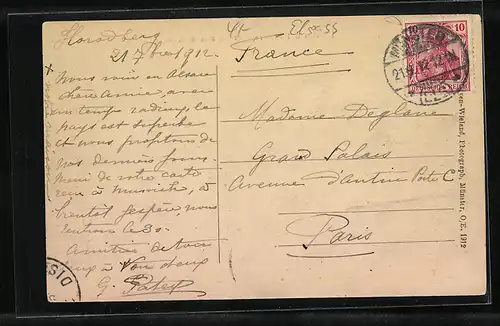 Horodberg
21 7bre 1912.
Nous voici en Alsace
chère Amie, avec
un temps radieux, le
pays est superbe
et nous profitons de
nos derniers jours.
Merci de votre carte
reçue à Munich, à
bientôt j'espère, nous
rentrons le 30.
Amitiés de tous
deux à Vous deux
G.
Els. 55
France
Madame Deglane
Grand Palais
Avenue d'Antin Porte C
Paris
10 10
MÜNSTER
21.9.12
(ELS
DEUTSCHES REICH
Photograph, Münster, O/E. 1912
DIS